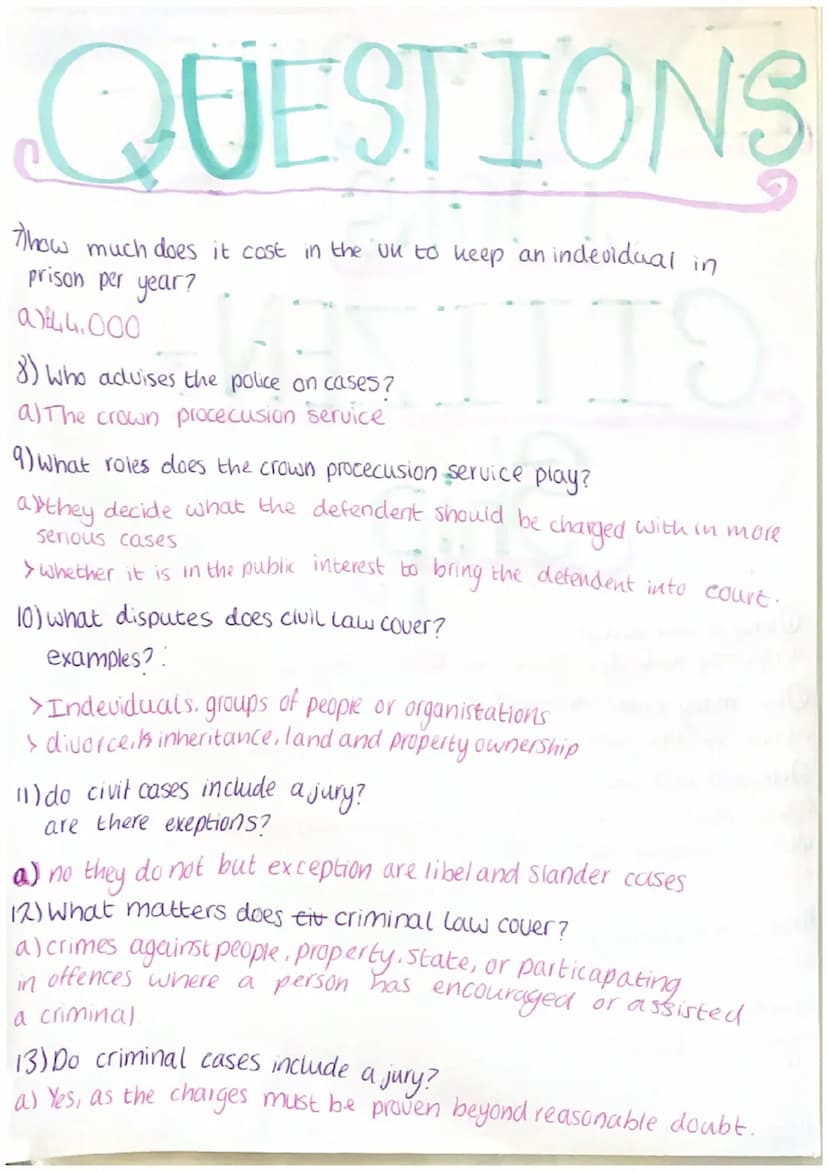 QUESTIONS
7)how much does it cost in the UK to keep an indevidual in
prison per year?
a)£44,000
8) Who advises the police on cases?
a)The crown procecusion service
9)What roles does the crown procecusion service play?
a)>they decide what the defendent should be charged with in more
serious cases
>whether it is in the public interest to bring the defendent into court.
10)what disputes does civil law cover?
examples?:
>Indeviduals, groups of people or organistations
> divorce, inheritance, land and property ownership
11)do civil cases include a jury?
are there exeptions?
a) no they do not but exception are libel and slander cases
12)What matters does civ criminal law cover?
a)crimes against people, property, state, or particapating
in offences where a person has encouraged or assisted
a criminal
13)Do criminal cases include a jury?
a) Yes, as the charges must be proven beyond reasonable doubt.